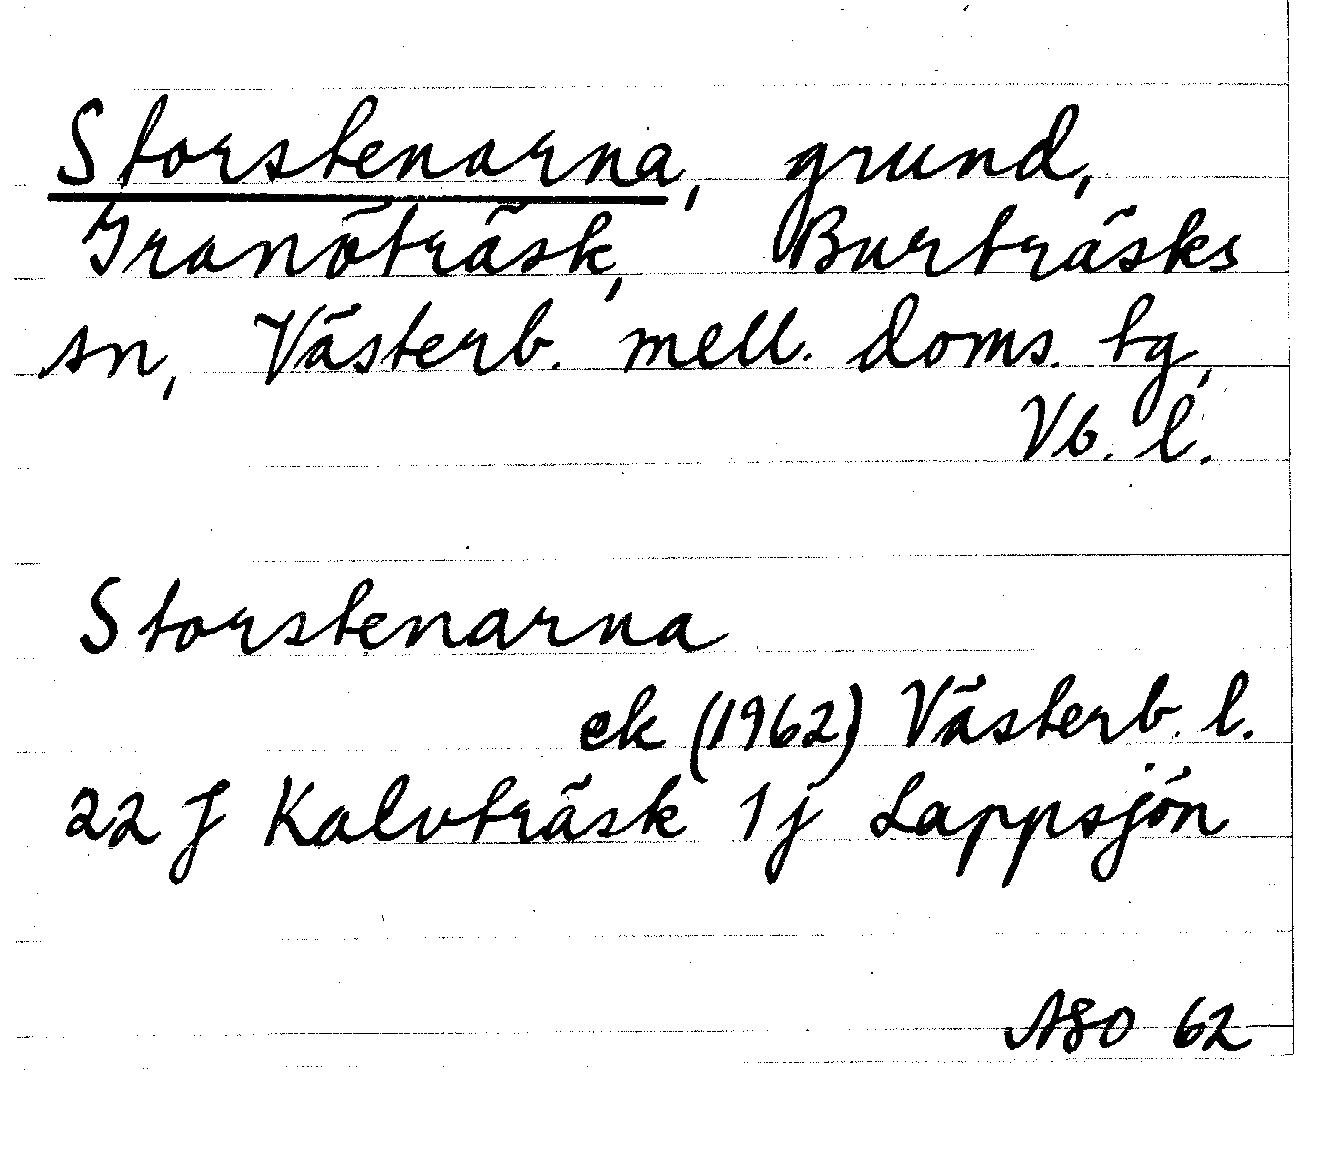 Storstenarna, grund,
Granöträsk, Burträsks
sn, Västerb. mell. doms. tg,
Vb. l.
Storstenarna
ek (1962) Västerb. l.
22 J Kalvträsk 1 j Lappsjön
ASO 62